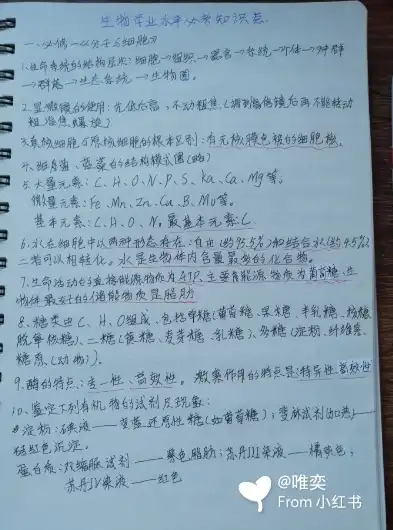 生物学业水平必考知识点.
一.必修一《分子与细胞》
1.生命系统的结构层次:细胞→组织→器官→系统→个体→种群
→群落→生态系统→生物圈。
2.显微镜的使用:先低后高,不动粗焦(换到高倍镜后再不能转动
粗准焦螺旋)
3.真核细胞与原核细胞的根本区别:有无核膜包被的细胞核。
4.细菌、蓝藻的结构模式图(略)
5.大量元素:C、H、O、N、P、S、Ka、Ca、Mg等;
微量元素:Fe、Mn、Zn、Cu、B、Mo等。
基本元素:C、H、O、N,最基本元素C
6.水在细胞中以两种形态存在:自由(约95.5%)和结合水(约4.5%)
二者可以相转化。水是生物体内含量最多的化合物。
7.生命活动的直接能源物质为ATP、主要能源物质为葡萄糖、生
物体最好的储能物质是脂肪
8.糖类由C、H、O组成,包括单糖(葡萄糖、果糖、半乳糖、核糖、
脱氧核糖)、二糖(蔗糖、麦芽糖、乳糖)、多糖(淀粉、纤维素、
糖原(动物))。
9.酶的特点:专一性、高效性。激素作用的特点是:特异性、高效性
10.鉴定下列有机物的试剂及现象:
淀粉:碘液——变蓝 还原性糖(如葡萄糖):斐林试剂(加热)——
砖红色沉淀。
蛋白质:双缩脲试剂——紫色 脂肪:苏丹III染液——橘黄色;
苏丹IV染液——红色
@唯奕
From 小红书